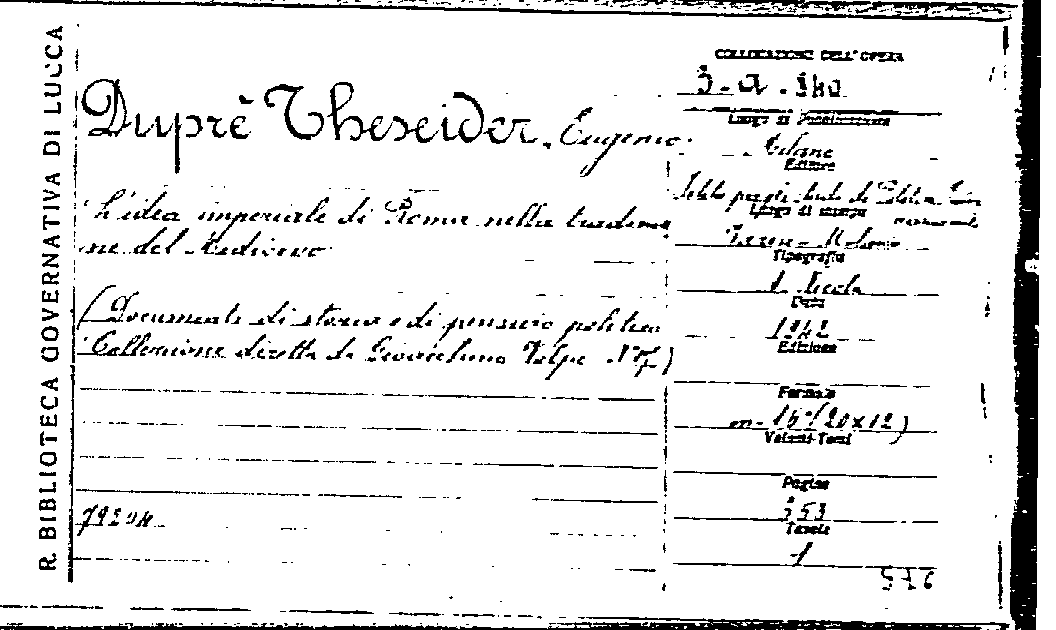 R. BIBLIOTECA GOVERNATIVA DI LUCCA
Duprè Theseider, Eugenio.
L'idea imperiale di Roma nella tradizio
ne del Medioevo
(Documenti di storia e di pensiero politico
Collezione diretta da Gioacchino Volpe
79204
COLLOCAZIONE DELL'OPERA
3-a.340
Luogo di Pubblicazione
Milano
Editore
Istituto per gli studi di Politica
Luogo di stampa
Varese - Milano
Tipografia
A. Nicola
Data
1942
Edizione
Formato
in-16º (20x12)
Volumi-Tomi
Pagine
353
Tavole
1
576